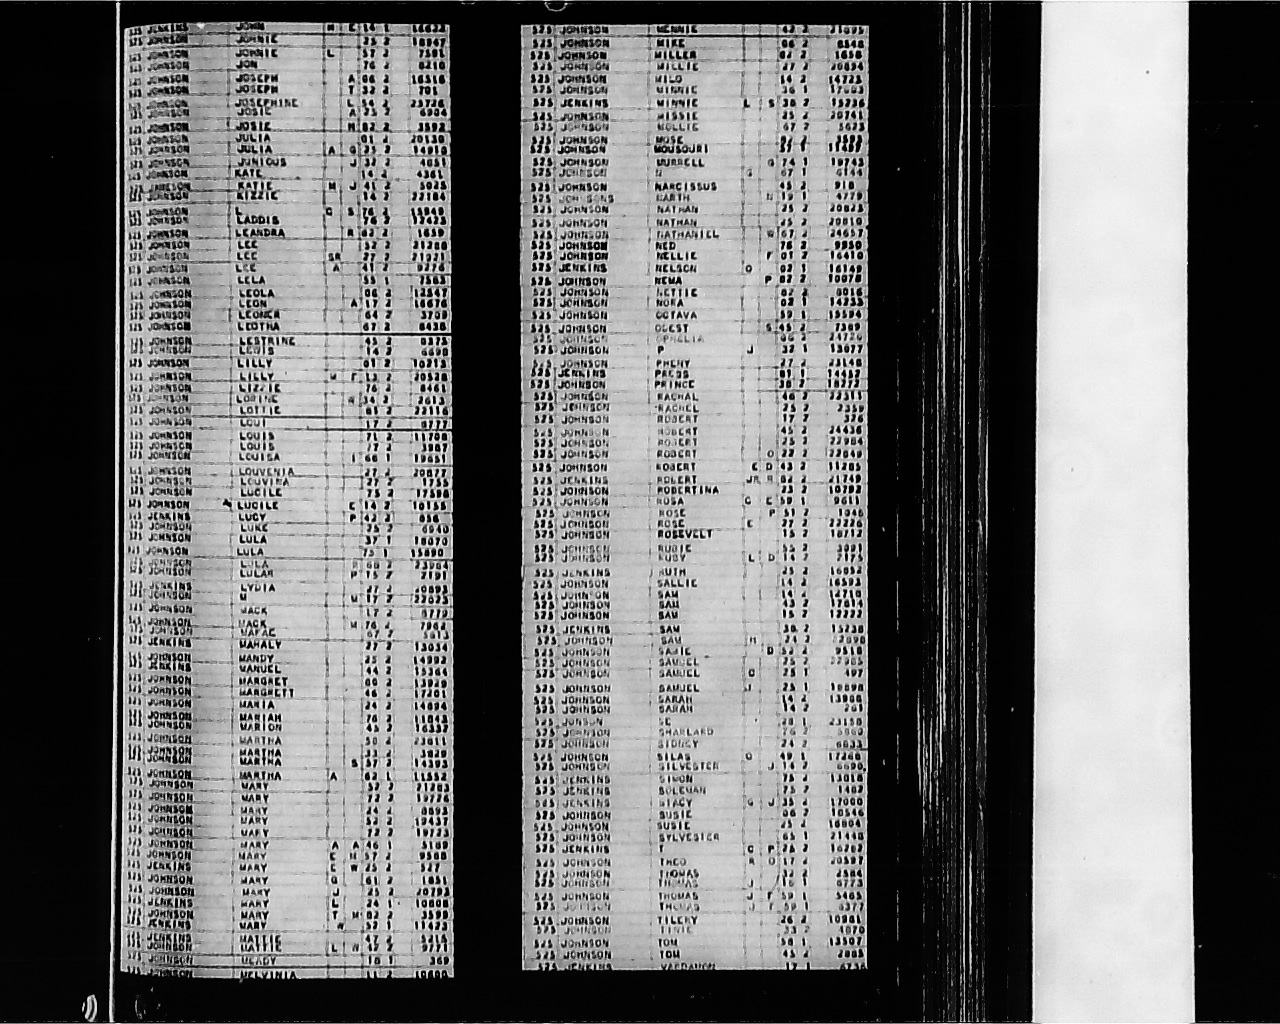 525 JENKINS JOHN M E 14 1
525 JOHNSON JOHNIE 25 2 18947
525 JOHNSON JOHNIE L 57 2 7501
JOHNSON JON 76 2 8210
JOHNSON JOSEPH A 06 2 16516
JOHNSON JOSEPH T 32 2 701
JOHNSON JOSEPHINE L 54 2 23726
JOHNSON JOSIE A 25 2 6904
JOHNSON JOSIE H 82 2 3592
JOHNSON JULIA 01 2 20530
JOHNSON JULIA A G 27 2 14910
JOHNSON JUNIOUS J 32 2 4051
JOHNSON KATE 14 2 4361
KATIE M J 41 2 5025
JOHNSON KIZZIE 14 2 22184
JOHNSON L C S 76 2 15949
JOHNSON LADDIS 76 2 17423
JOHNSON LEANDRA R 62 2 1659
JOHNSON LEE 52 2 21288
JOHNSON LEE SR 27 2 21321
JOHNSON LEE A 41 2 9276
JOHNSON LELA 55 1 7563
JOHNSON LEOLA 06 2 13547
JOHNSON LEON A 17 2 16676
JOHNSON LEONER 64 2 3709
JOHNSON LEOTHA 67 2 8438
JOHNSON LESTRINE 45 2
JOHNSON LEWIS 14 2 6690
JOHNSON LILLY 01 2 10213
JOHNSON LILLY M F 13 2 20528
JOHNSON LIZZIE 76 2 8461
JOHNSON LORINE R 34 2 2613
JOHNSON LOTTIE 61 2 22116
JOHNSON LOUI 17 2 6777
JOHNSON LOUIS 71 2 11708
JOHNSON LOUIS 77 2 3987
JOHNSON LOUISA I 66 1 19651
JOHNSON LOUVENIA 27 2 20877
JOHNSON LOUVINA 27 2 1755
JOHNSON LUCILE 75 2 17598
JOHNSON LUCILE E 14 2 10155
JENKINS LUCY P 43 2 656
JOHNSON LUKE 25 2 6940
JOHNSON LULA 37 1 18070
JOHNSON LULA 75 1 15890
JOHNSON LULA R 60 2
JOHNSON LULAR P 15 2 2191
JENKINS LYDIA 27 2 20893
JOHNSON M M 17 2 22023
JOHNSON MACK 17 2 6779
JOHNSON MACK M 76 2 7962
JOHNSON 67 2 5613
JENKINS MAHALY 27 2 13034
JOHNSON MANDY 25 2 14992
JENKINS MANUEL 44 2 15364
JOHNSON MARGRET 60 2 13929
JOHNSON MARGRETT 46 2 17201
JOHNSON MARIA 24 2 14894
JOHNSON MARIAH 76 2 11843
JOHNSON MARION 45 2 6337
JOHNSON MARTHA 50 2 23611
JOHNSON MARTHA 33 2 3829
JOHNSON MARTHA S 57 2 14393
JOHNSON MARTHA A 62 1 11552
JOHNSON MARY 52 2 21283
JOHNSON MARY 72 2 19726
JOHNSON MARY 24 2 8893
JOHNSON MARY 53 2 19437
JOHNSON MARY 72 2 19723
JOHNSON MARY A A 46 1 5189
JOHNSON MARY E H 57 2 9588
JENKINS MARY E W 25 2 527
JOHNSON MARY G 61 2 1851
JOHNSON MARY J 25 2 20793
JENKINS MARY L 24 1 10608
JOHNSON MARY T M 82 2 3599
JENKINS MARY W 52 1 11423
JENKINS MATTIE 47 2 5215
JOHNSON MATTIE L W 42 2 9771
JOHNSON MEADY 10 1 369
JOHNSON MELVINIA 11 2
525 JOHNSON MENNIE 42 2 21095
525 JOHNSON MIKE 06 2 8548
525 JOHNSON MILLER 82 2 1658
525 JOHNSON MILLIE 27 2 20894
525 JOHNSON MILO 14 2 14725
525 JOHNSON MINNIE 36 1 17603
525 JENKINS MINNIE L S 38 2 15236
525 JOHNSON MISSIE 25 2 20741
525 JOHNSON MOLLIE 67 2 5623
525 JOHNSON MOSE 82 2 3595
525 JOHNSON MOUSOURI 57 1
525 JOHNSON MURRELL G 74 1 19743
525 JOHNSON N G 67 1 6144
525 JOHNSON NARCISSUS 45 2 918
525 JOHNSONS NARTH N 19 1 4779
525 JOHNSON NATHAN 25 2 20823
525 JOHNSON NATHAN 25 2 20810
525 JOHNSON NATHANIEL W 67 2 24657
525 JOHNSON NED 76 2 9950
525 JOHNSON NELLIE F 01 2 16410
525 JENKINS NELSON O 02 1 16149
525 JOHNSON NEMA P 02 2 10078
525 JOHNSON NETTIE 82 2 8016
525 JOHNSON NORA 02 1 14235
525 JOHNSON OCTAVA 59 1 15594
525 JOHNSON ODEST S 45 2 7389
525 JOHNSON OPHELIA 06 2 24720
525 JOHNSON P J 32 1 13077
525 JOHNSON PHENY 27 2 23148
525 JENKINS PRESS 01 1 7681
525 JOHNSON PRINCE 38 2 18272
525 JOHNSON RACHAL 46 2 22311
525 JOHNSON RACHEL 25 2 2359
525 JOHNSON ROBERT 17 2 326
525 JOHNSON ROBERT 45 2 24436
525 JOHNSON ROBERT 25 2 22984
525 JOHNSON ROBERT O 22 2 22649
525 JOHNSON ROBERT E D 43 2 11285
525 JENKINS ROBERT JR R 82 2 21749
525 JOHNSON ROBERTINA 23 2 10729
525 JOHNSON ROSA C E 59 1 9611
525 JOHNSON ROSE P 51 2 1046
525 JOHNSON ROSE E 27 2 22226
525 JOHNSON ROSEVELT 15 2 18712
525 JOHNSON RUBIE 55 2 3091
525 JOHNSON RUBY L D 14 2
525 JENKINS RUTH 25 2 16852
525 JOHNSON SALLIE 14 2 16593
525 JOHNSON SAM 14 2 12710
525 JOHNSON SAM 43 2 17614
525 JOHNSON SAM 15 2 12272
525 JENKINS SAM 38 2 15238
525 JOHNSON SAM H 24 2
525 JOHNSON SAMIE D 52 2 9518
525 JOHNSON SAMUEL 25 2 22985
525 JOHNSON SAMUEL O 25 1 497
525 JOHNSON SAMUEL J 25 1 18898
525 JOHNSON SARAH 14 2 13908
525 JOHNSON SARAH 14 2 265
525 JONSON SE 28 1 23158
525 JOHNSON SHARLARD 76 2
525 JOHNSON SIDNEY 24 2 6633
525 JOHNSON SILAS O 49 1 17268
525 JOHNSON SILVESTER J 14 2 6690
525 JENKINS SIMON 75 2 13016
525 JENKINS SOLEMAN 75 2 1482
525 JENKINS STACY G J 35 2 17000
525 JOHNSON SUSIE 06 2 10546
525 JOHNSON SUSIE 25 2 16804
525 JOHNSON SYLVESTER 65 1 21448
525 JENKINS T C P 26 2 16262
525 JOHNSON THEO R O 17 2 20597
525 JOHNSON THOMAS 12 2 2584
525 JOHNSON THOMAS J 16 1 6773
525 JOHNSON THOMAS J F 59 1 5465
525 JOHNSON THOMAS J F 59 1 6377
525 JOHNSON TILERY 26 2 10981
525 JOHNSON TINIE 33 2 4070
525 JOHNSON TOM 58 1 13507
525 JOHNSON TOM 45 2 2885
525 JENKINS VARDAMON 17 1